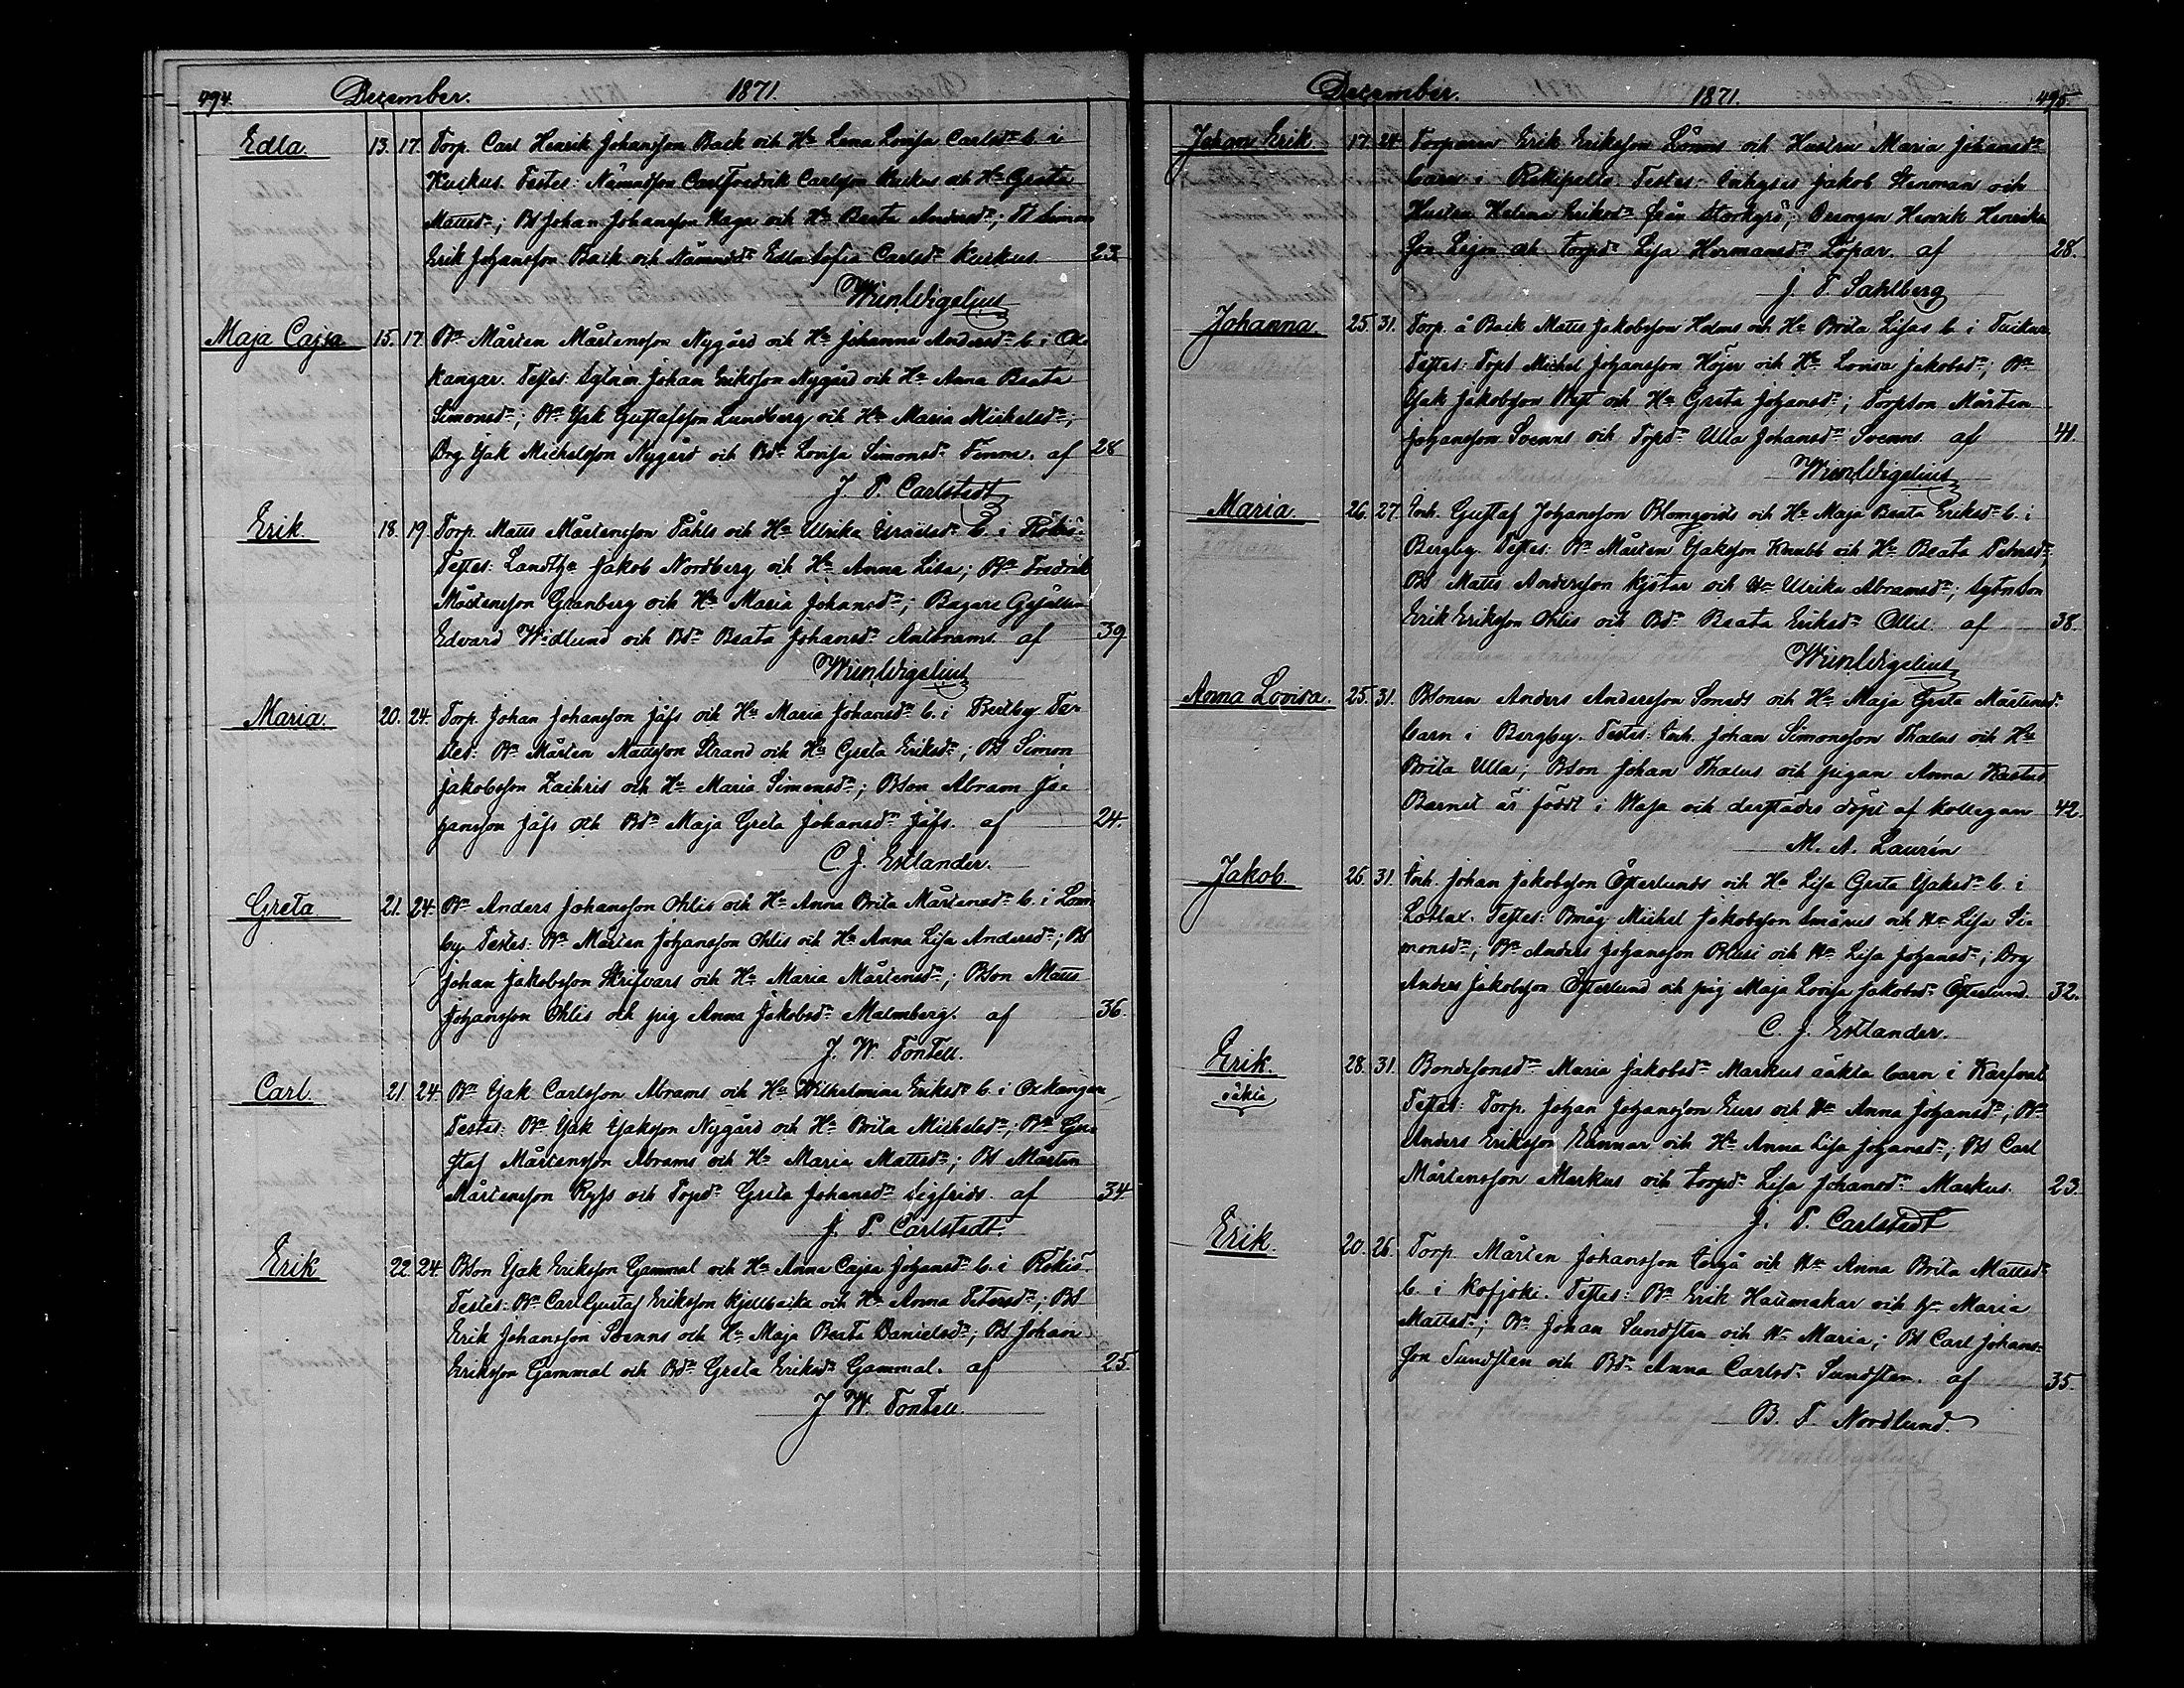 494. December. 1871.
Edla. 13. 17. Torp. Carl Henrik Johansson Back och Hu Lena Lovisa Carlsdr b. i
Kuckus. Testes: Nämndson Carl Fredrik Carlsson Kuckus och Hu Greta
Mattsdr; BS Johan Johansson Haga och Hu Beata Andersdr; TS Simon
Erik Johansson Back och Nämndsdr Edla Sofia Carlsdr Kuckus 23
Maja Cajsa 15. 17. Bn Mårten Mårtensson Nygård och Hu Johanna Andersdr b. i Ox-
kangar. Testes: Sytn:n Johan Eriksson Nygård och Hu Anna Beata
Simonsdr; Bn Isak Gustafsson Lundberg och Hu Maria Mickelsdr;
Drg Isak Michelsson Nygård och Bdr Lovisa Simonsdr Finne. af 28
J. P. Carlstedt
Erik 18. 19. Torp. Matts Mårtensson Påhls och Hu Ulrika Israelsdr b. i Rökiö
Testes: Jakob Nordberg och Hu Anna Lisa; Bn Fredrik
Mårtensson Granberg och Hu Maria Johansdr; Bagare Gesällen
Edvard Widlund och Bdr Beata Johansdr af 39
Maria. 20. 24. Torp. Johan Johansson Jåfs och Hu Maria Johansdr b. i Bertby Tes-
tes: Bn Mårten Mattsson Strand och Hu Greta Eriksdr; BS Simon
Jakobsson Zachris och Hu Maria Simonsdr; BSon Abram Jo-
hansson Jåfs och Bdr Maja Greta Johansdr Jåfs. af 24.
C. J. Estlander.
Greta 21. 24. Bn Anders Johansson Ohlis och Hu Anna Brita Mårtensdr b. i Lom-
by Testes: Bn Mårten Johansson Ohlis och Hu Anna Lisa Andersdr; BS
Johan Jakobsson Skrifvars och Hu Maria Mårtensdr; BSon Matts
Johansson Ohlis och pig Anna Jakobsdr Malmberg. af 36.
J. W. Fontell.
Carl. 21. 24. Bn Isak Carlsson Abrams och Hu Wilhelmina Eriksdr b. i Oxkangar
Testes: Bn Isak Isaksson Nygård och Hu Brita Mickelsdr; Bn Gu-
staf Mårtensson Abrams och Hu Maria Mattsdr; BS Mårten
Mårtensson Ryss och Topdr Greta Johansdr Sigfrids. af 34
J. P. Carlstedt.
Erik 22. 24. BSon Isak Eriksson Gammal och Hu Anna Cajsa Johansdr b. i Rökiö
Testes: Bn Carl Gustaf Eriksson Kjellbacka och Hu Anna Petersdr; BS
Erik Johansson Svenns och Hu Maja Beata Danielsdr; BS Johan
Eriksson Gammal och Bdr Greta Eriksdr Gammal. af 25.
J W. Fontell.
December. 1871. 495.
Johan Erik 17. 24. Torparen Erik Eriksson Lönns och Hustru Maria Johansdr
barn i Rekipelto. Testes: Inhyses Jakob Stenman och
Hustru Helena Eriksdr från Storkyro; Drengen Henrik Henriks-
son Lejon och torpdr Lisa Hermansdr Löpar. af 28.
J. F. Sahlberg
Johanna. 25. 31. Torp. å Back Matts Jakobsson Holms och Hu Brita Lisas b. i Tuckur
Testes: TopS Michel Johansson Höjer och Hu Lovisa Jakobsdr; Bn
Isak Jakobsson Nyt och Hu Greta Johansdr; Torpson Mårten
Johansson Svenns och Topdr Ulla Johansdr Svenns. af 41.
Maria 26. 27. Inh. Gustaf Johansson Blomqvists och Hu Maja Beata Eriksdr b. i
Bergby. Testes: Bn Mårten Isaksson Knubb och Hu Beata Petersdr;
BS Matts Andersson Kjötar och Hu Ulrika Abramsdr; Sytnson
Erik Eriksson Ohlis och Bdr Beata Eriksdr Ollil. af 38.
Anna Lovisa. 25. 31. BSonen Anders Andersson Smeds och Hu Maja Greta Mårtensdr
barn i Bergby. Testes: Inh. Johan Simonsson Thalus och Hu
Brita Ulla; BSon Johan Thalus och pigan Anna Kastus
Barnet är födt i Wasa och derstädes döpt af kollegan 42.
M. A. Laurén
Jakob. 26. 31. Inh. Johan Jakobsson Österlunds och Hu Lisa Greta Isaksdr b. i
Lotlax. Testes: Bmåg Michel Jakobsson Smårus och Hu Lisa Si-
monsdr; Bn Anders Johansson Blusi och Hu Lisa Johansdr; Drg
Anders Jakobsson Österlund och pig Maja Lovisa Jakobsdr Österlund. 32.
C. J. Estlander.
Erik. 28. 31. Bondesonsdr Maria Jakobsdr Markus oäkta barn i Karfvat
oäkta Testes: Torp. Johan Johansson Eurs och Hu Anna Johansdr; Bn
Anders Eriksson Rinnar och Hu Anna Lisa Johansdr; BS Carl
Mårtensson Markus och torpdr Lisa Johansdr Markus. 23.
J. P. Carlstedt
Erik. 20. 26. Torp. Mårten Johansson och Hu Anna Brita Mattsdr
b. i Kofjoki. Testes: Bn Erik Hattmakar och Hu Maria
Mattsdr; Bn Johan Sundsten och Hu Maria; BS Carl Johans-
son Sundsten och Bdr Anna Carlsdr Sundsten. af 35.
B. T. Nordlund.